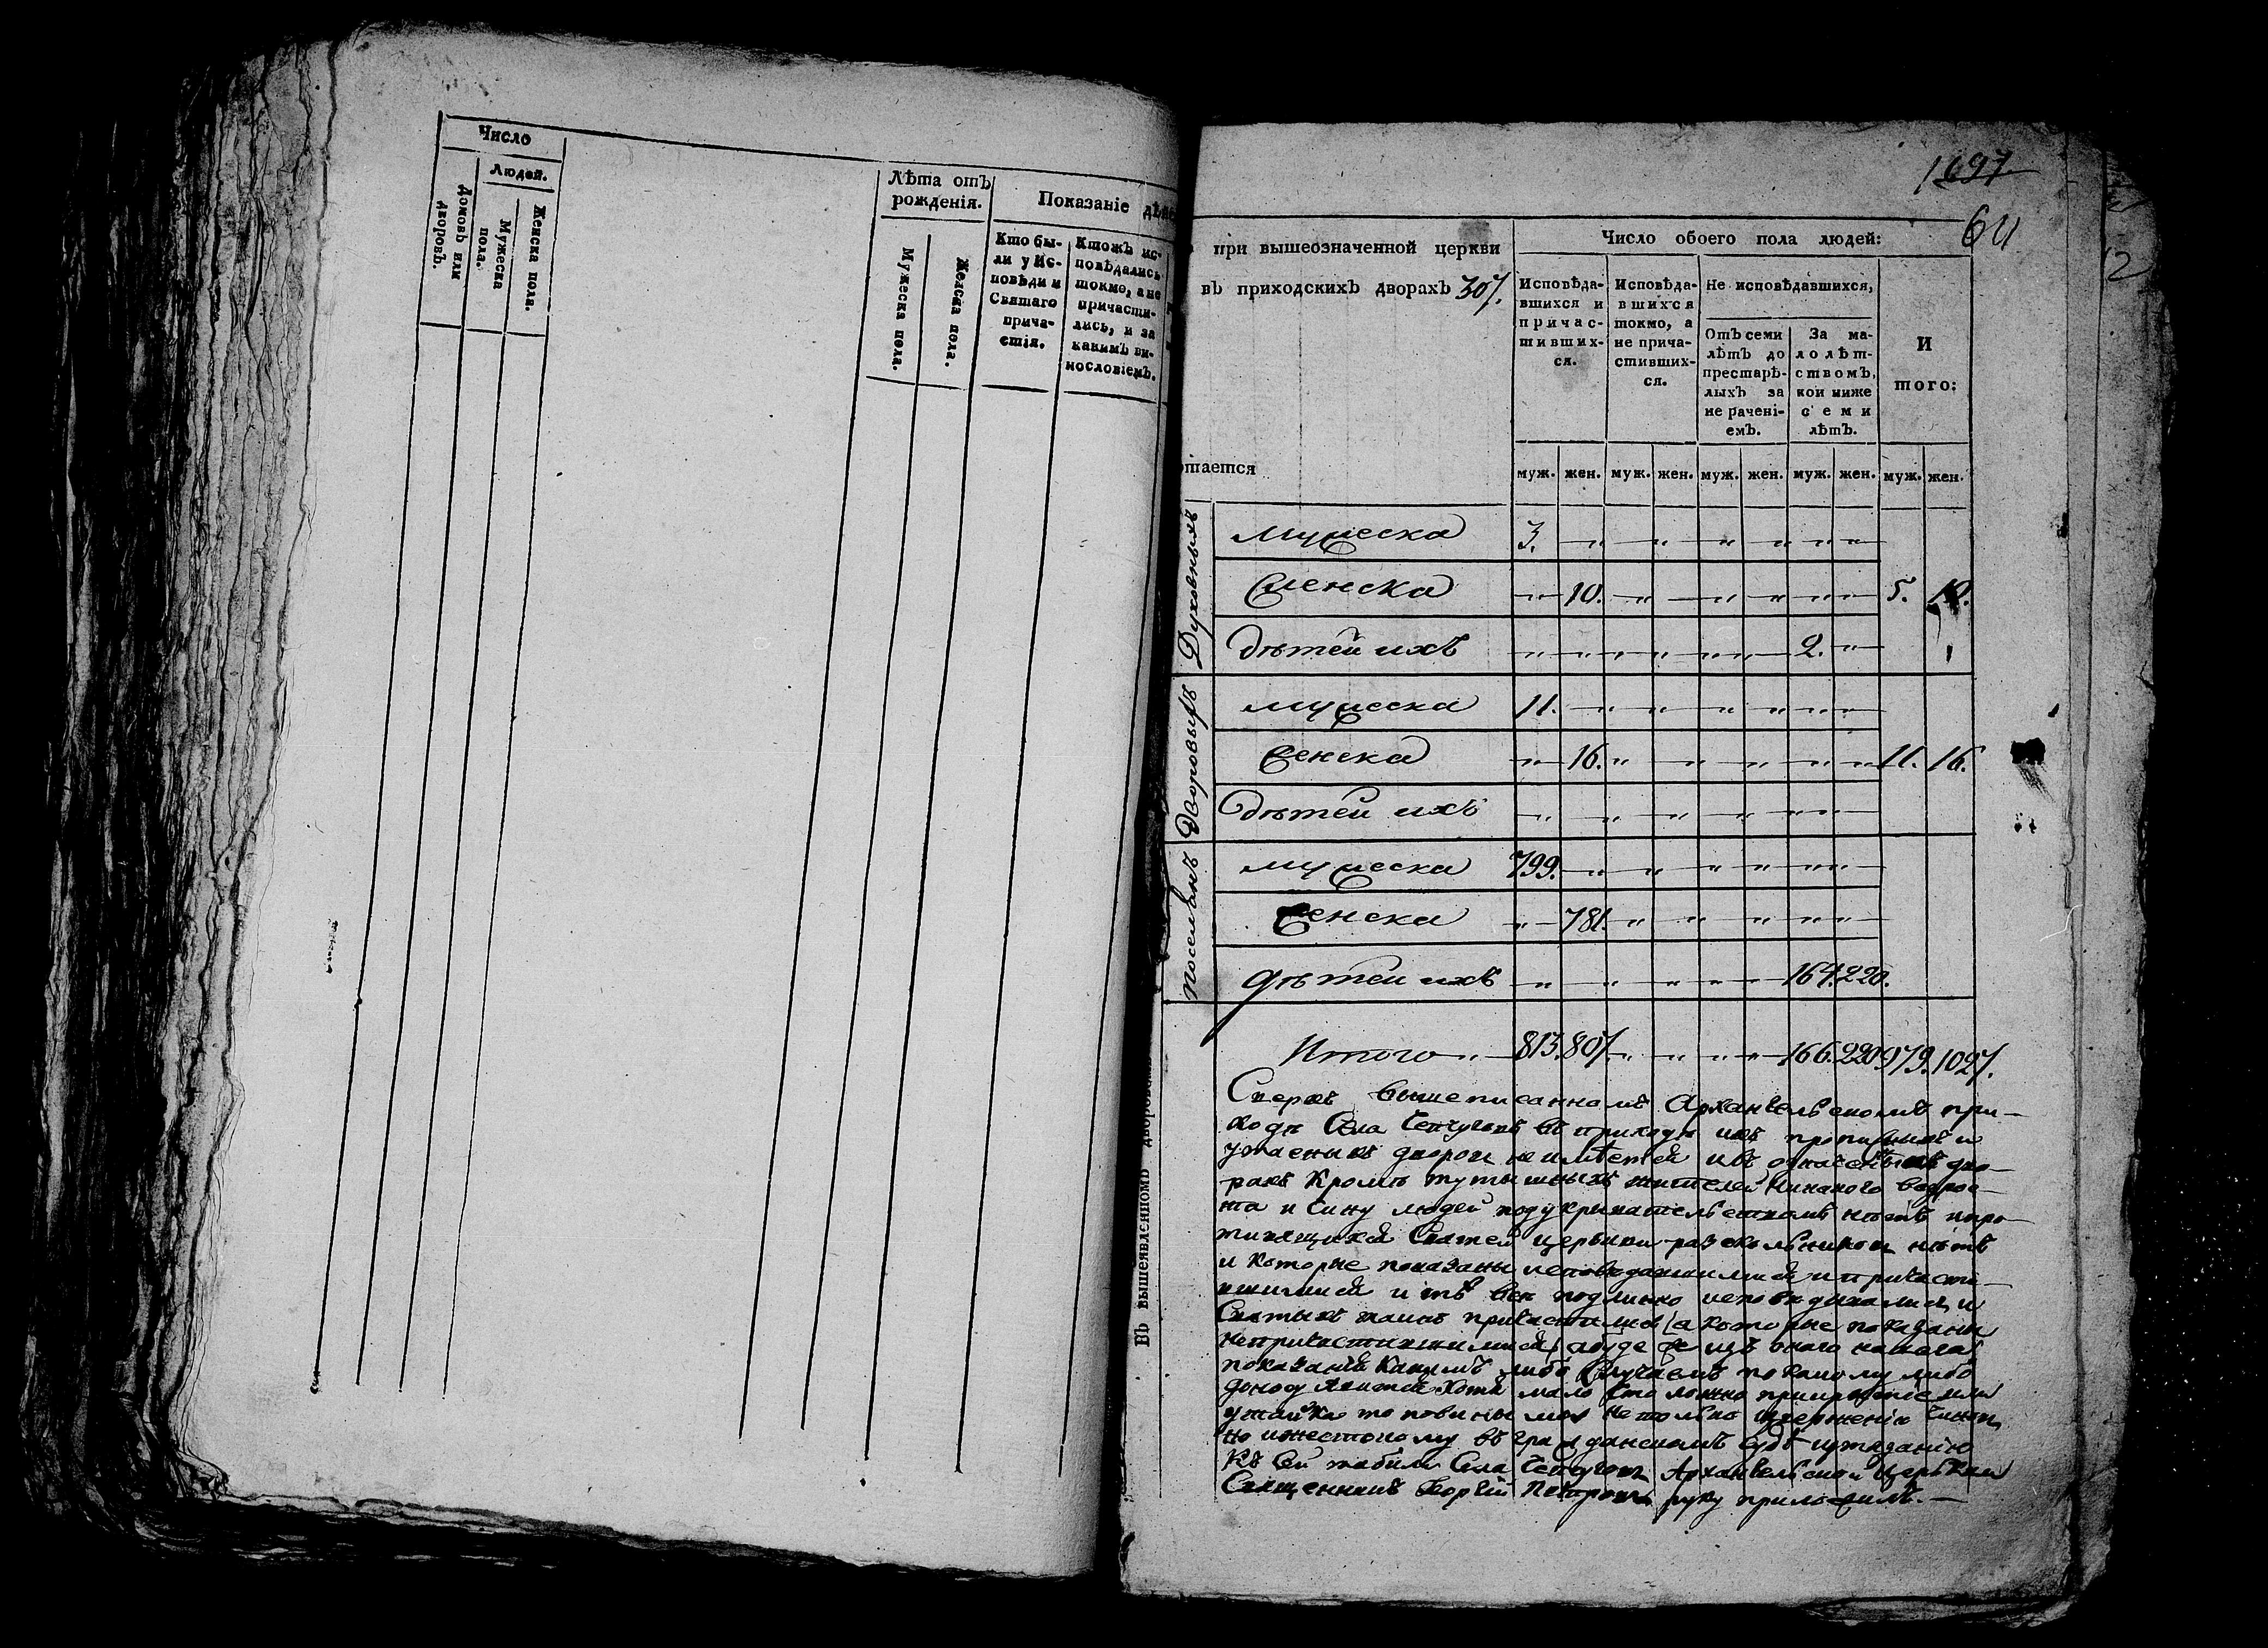 Число
Людей.
домовъ или дворовъ.
Мужеска пола.
Женска пола.
Лѣта отъ рожденія.
Мужеска пола.
Женска пола.
Показаніе
Кто бы-
ли у Ис-
повѣди и
Святаго
прича-
стія.
Ктожъ ис-
повѣдались
токмо, а не
причасти-
лись, и за
какимъ ви-
нословіемъ.
1697
64
при вышеозначенной церкви
въ приходскихъ дворахъ 307.
Число обоего пола людей:
Исповѣда-
вшихся и
причас-
тивших-
ся.
Исповѣда-
вшихся
токмо, а
не прича-
стивших-
ся.
Не исповѣдавшихся,
Отъ семи
лѣтъ до
престарѣ-
лыхъ за
не раченi-
емъ.
За ма-
лолѣт-
ствомъ,
кои ниже
семи
лѣтъ.
И
того:
муж. жен. муж. жен. муж. жен. муж. жен. муж. жен.
Духовныхъ
мужеска 3.
женска 10. 5. 10.
дѣтей ихъ 2.
Дворовыхъ
мужеска 11.
женска 16. 11. 16.
дѣтей ихъ
поселянъ
мужеска 799.
женска 781.
дѣтей ихъ 164. 220.
Итого 813. 807. 166. 220 979. 1027.
Въ вышеявленномъ
Сверхъ вышеписанномъ Архангельскомъ при-
ходѣ Села въ приходѣ
утаеныхъ дворовъ не имѣется ивъ дво-
рахъ Кромѣ жителей
чину людей под укрывательствомъ нѣтъ
Святей церькви разкольниковъ нѣтъ
и которые показаны исповѣдавшимися и причасти-
вшимися и тѣ всѣ подлинно исповѣдывались и
Святыхъ таинъ причастились а которые показаны
непричастившимися
показанія Какимъ либо случаемъ по какому либо
доводу явится хотя мало
утайка то повинны мы не только Чиновъ
но и жестокому въ гражданскомъ судѣ истязанию
Къ Сей табели Села Архангельской Церькви
Священникъ Георгій Петровъ руку приложилъ.